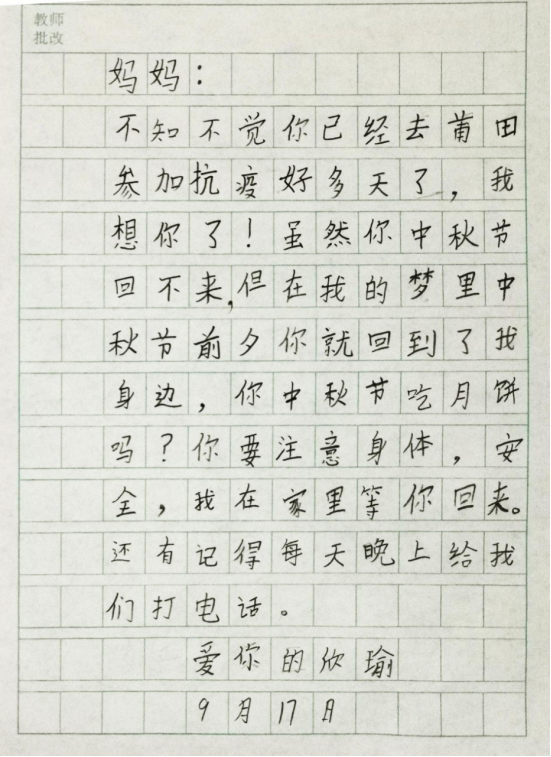 教师
批改
妈妈：
不知不觉你已经去莆田
参加抗疫好多天了，我
想你了！虽然你中秋节
回不来，但在我的梦里中
秋节前夕你就回到了我
身边，你中秋节吃月饼
吗？你要注意身体，安
全，我在家里等你回来。
还有记得每天晚上给我
们打电话。
爱你的欣瑜
9月17日